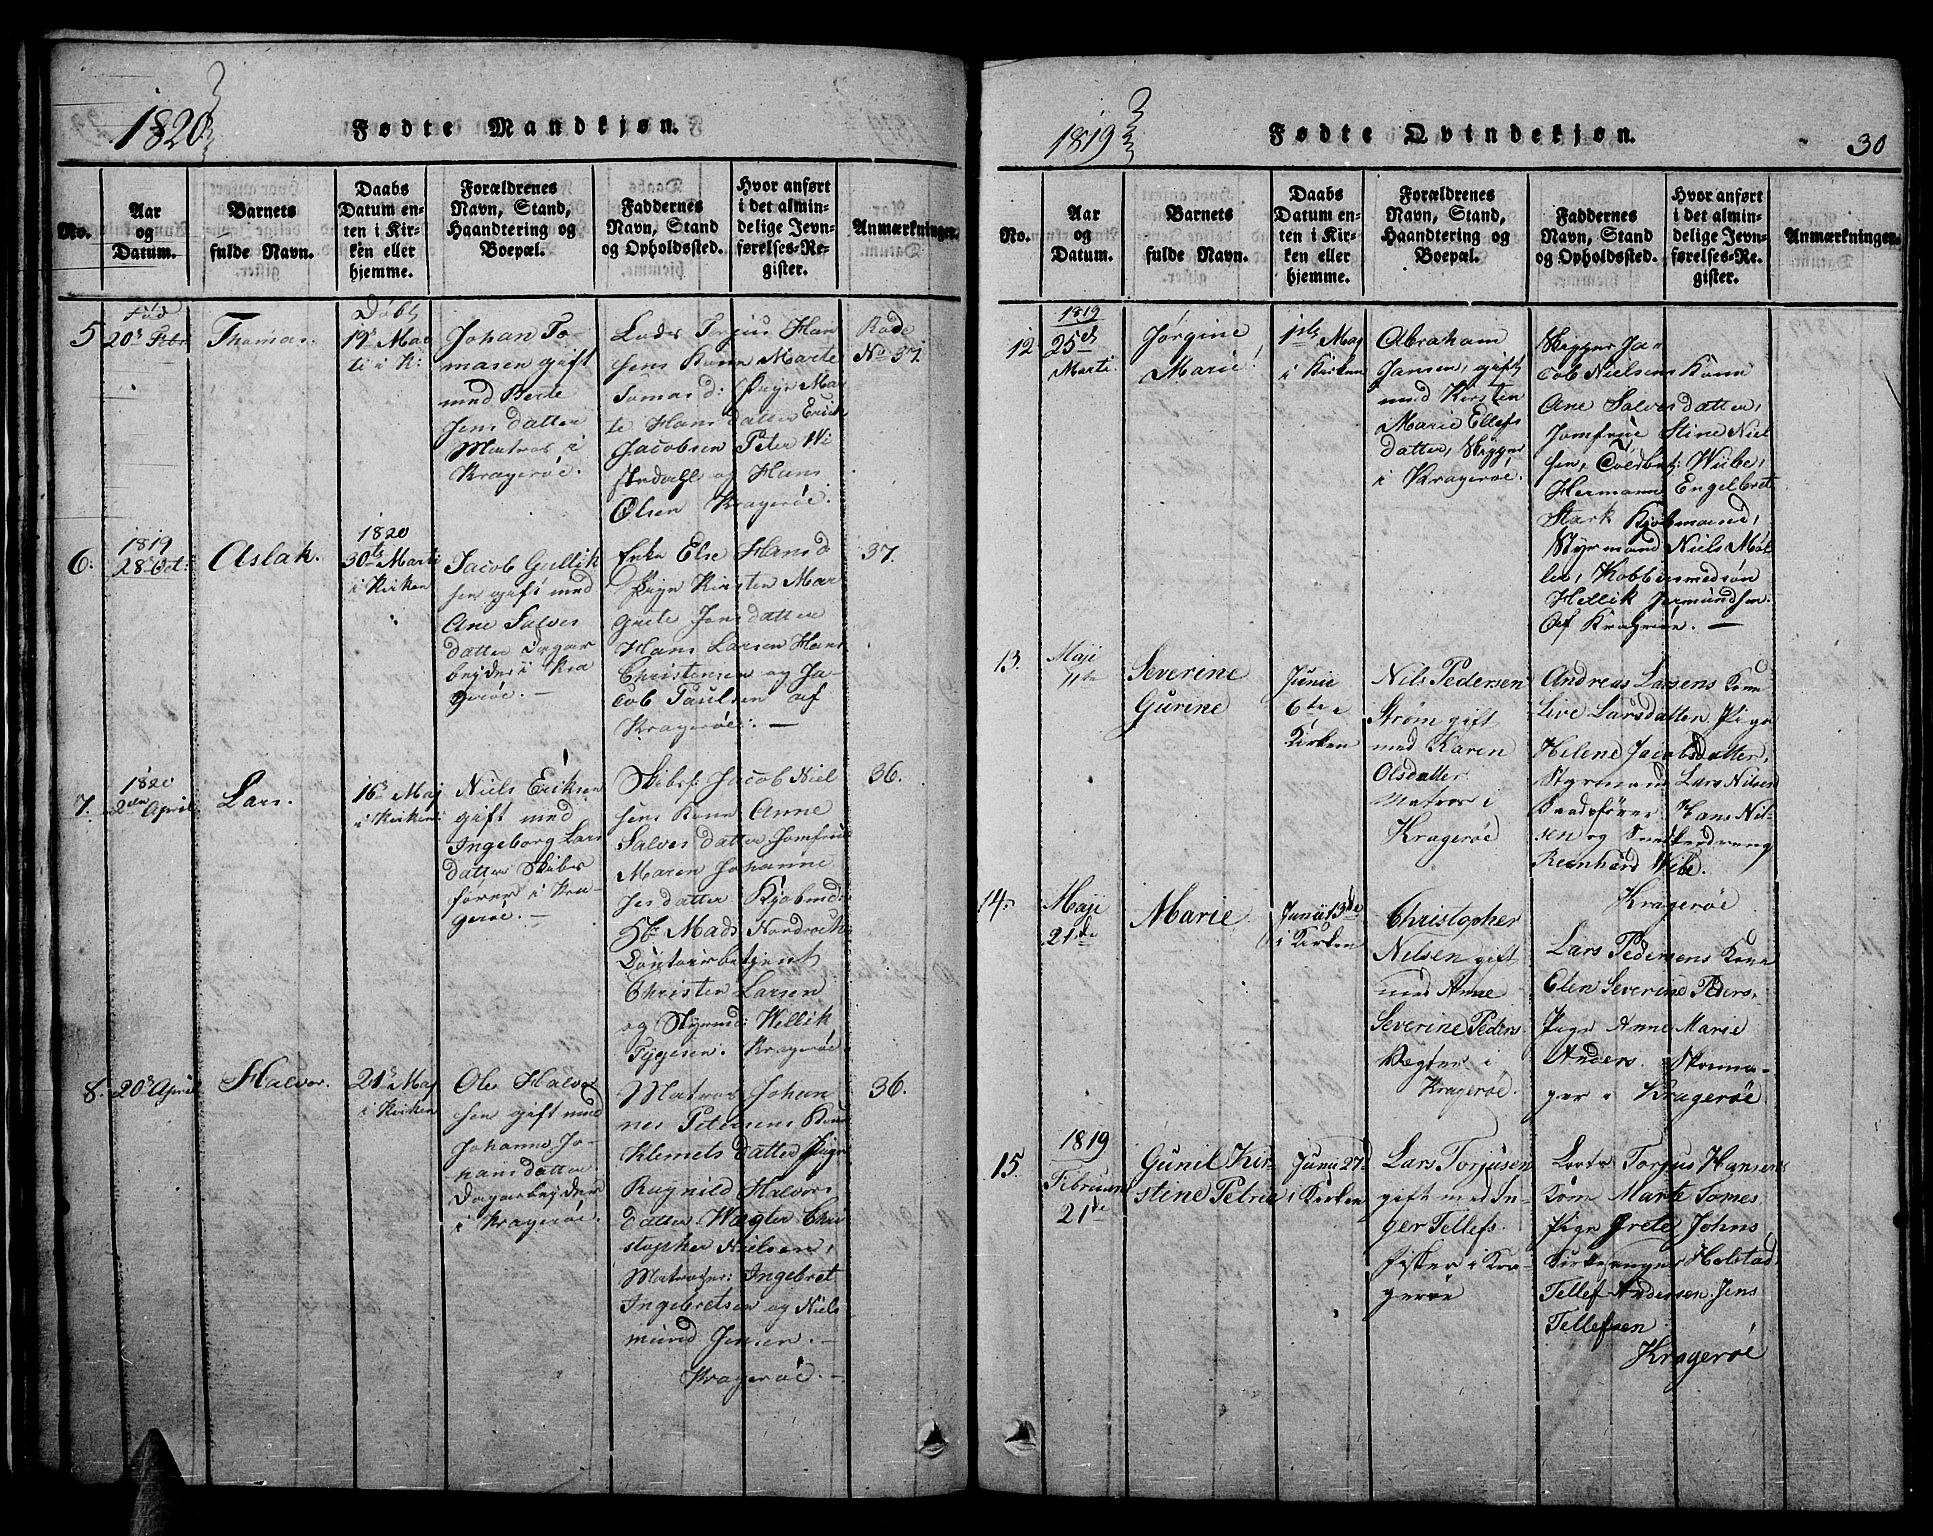 1820
Fødte Mandkjøn.
No.
Aar
og
Datum.
Barnets
fulde Navn.
Daabs
Datum en-
ten i Kir-
ken eller
hjemme.
Forældrenes
Navn, Stand,
Haandtering og
Boepæl.
Faddernes
Navn, Stand
og Opholdssted.
Hvor anført
i det almin-
delige Jevn-
førelses-Re-
gister.
Anmærkninger.
5
Fød
20de Febr
Thomas.
Døbt
19de Mar
ti i K:
Johan To-
masen gift
med Berte
Jens datter
Matros i
Kragerøe.
Torjus Han
sens Kone Marte
Tomas d: Pige Mar
te Hans datter Erik
Jacobsen Peter
og Hans
Olsen Kragerøe.
No 37.
6.
1819
28 Oct:
Aslak.
1820
30te Marti
i Kirken
Jacob Gullik
sen gift med
Ane Salves
datter Dagar
beyder i Kra
gerøe. –
Enke Else Hans d
Pige Kirsten Mar
grete Jens datter
Hans Larsen Hans
Christensen og Ja-
cob Paulsen af
Kragerøe. –
37.
7.
1820
2den April
Lars.
16de Maj
i Kirken
Niels Eriksen
gift med
Ingeborg Lars
datter Skibs
fører i Kra-
gerøe. –
Skibsf. Jacob Niel
sens Kone Anne
Salves datter Jomfrue
Maren Johanne
Jens datter Kjøbmd:
Mads
Contoirbetjent
Christen Larsen
og Styrmd: Hellik
Tygesen. Kragerøe.
36.
8.
20de April
Halvor.
21de Maj
i Kirken
Ole Halvor
sen gift med
Johanne Jo-
hans datter
Dagarbejder
i Kragerøe.
Matros Johan
nes Petersens Kone
Klemets datter Pige
Ragnild Halvors
datter Wægter Chri
stopher Nielsen,
Matroser: Ingebret
Ingebretsen og Niels
mund Jensen. –
Kragerøe. –
36.
1819
Fødte Qvindekjøn.
30
No.
Aar
og
Datum.
Barnets
fulde Navn.
Daabs
Datum en-
ten i Kir-
ken eller
hjemme.
Forældrenes
Navn, Stand,
Haandtering og
Boepæl.
Faddernes
Navn, Stand
og Opholdssted.
Hvor anført
i det almin-
delige Jevn-
førelses-Re-
gister.
Anmærkninger.
12
1819
25de
Marti.
Jørgine
Marie
1ste Maj
i Kirken
Abraham
Jansen, gift
med Kirsten
Marie Ellefs
datter, Skipper
i Kragerøe.
Skipper Ja-
cob Nielsens Kone
Ane Salves datter,
Jomfrue Stine Niel
sen, Wiibe,
Hermann Engelbret
Stark Kjøbmænd,
Styrmand Niels Møl
ler, Kobbersmedsøn
Hellik Jermundsen.
Af Kragerøe. –
13.
Maji
11te
Severine
Gurine
Junie
6te i
Kirken
Nils Pedersen
Strøm gift
med Karen
Olsdatter
Matros i
Kragerøe
Andreas Larsens Kone
Live Larsdatter Pige
Helene Jacobsdatter,
Styrmand Lars Nilsen
Hans Nil-
sen og
Reinhard Wibe.
Kragerøe
14.
Maji
21de
Marie
Junii 13de
i Kirken
Christopher
Nilsen gift
med Anne
Severine Peders
Vægter i
Kragerøe.
Lars Pedersens Kone
Elen Severine Peders,
Pige Anne Marie
Anders. Skoma-
ger i Kragerøe
15.
1819
Februari
21de
Gunil Kir
stine Petrea
Junii 27de
i Kirken
Lars Torjusen
gift med In-
ger Tellefs.
Fisker i Kra-
gerøe
Torjus Hansens
Kone Marte Tomes
Pige Grete Johns
Kirkesanger Helstad
Tellef Andersen. Jens
Tellefsen
Kragerøe